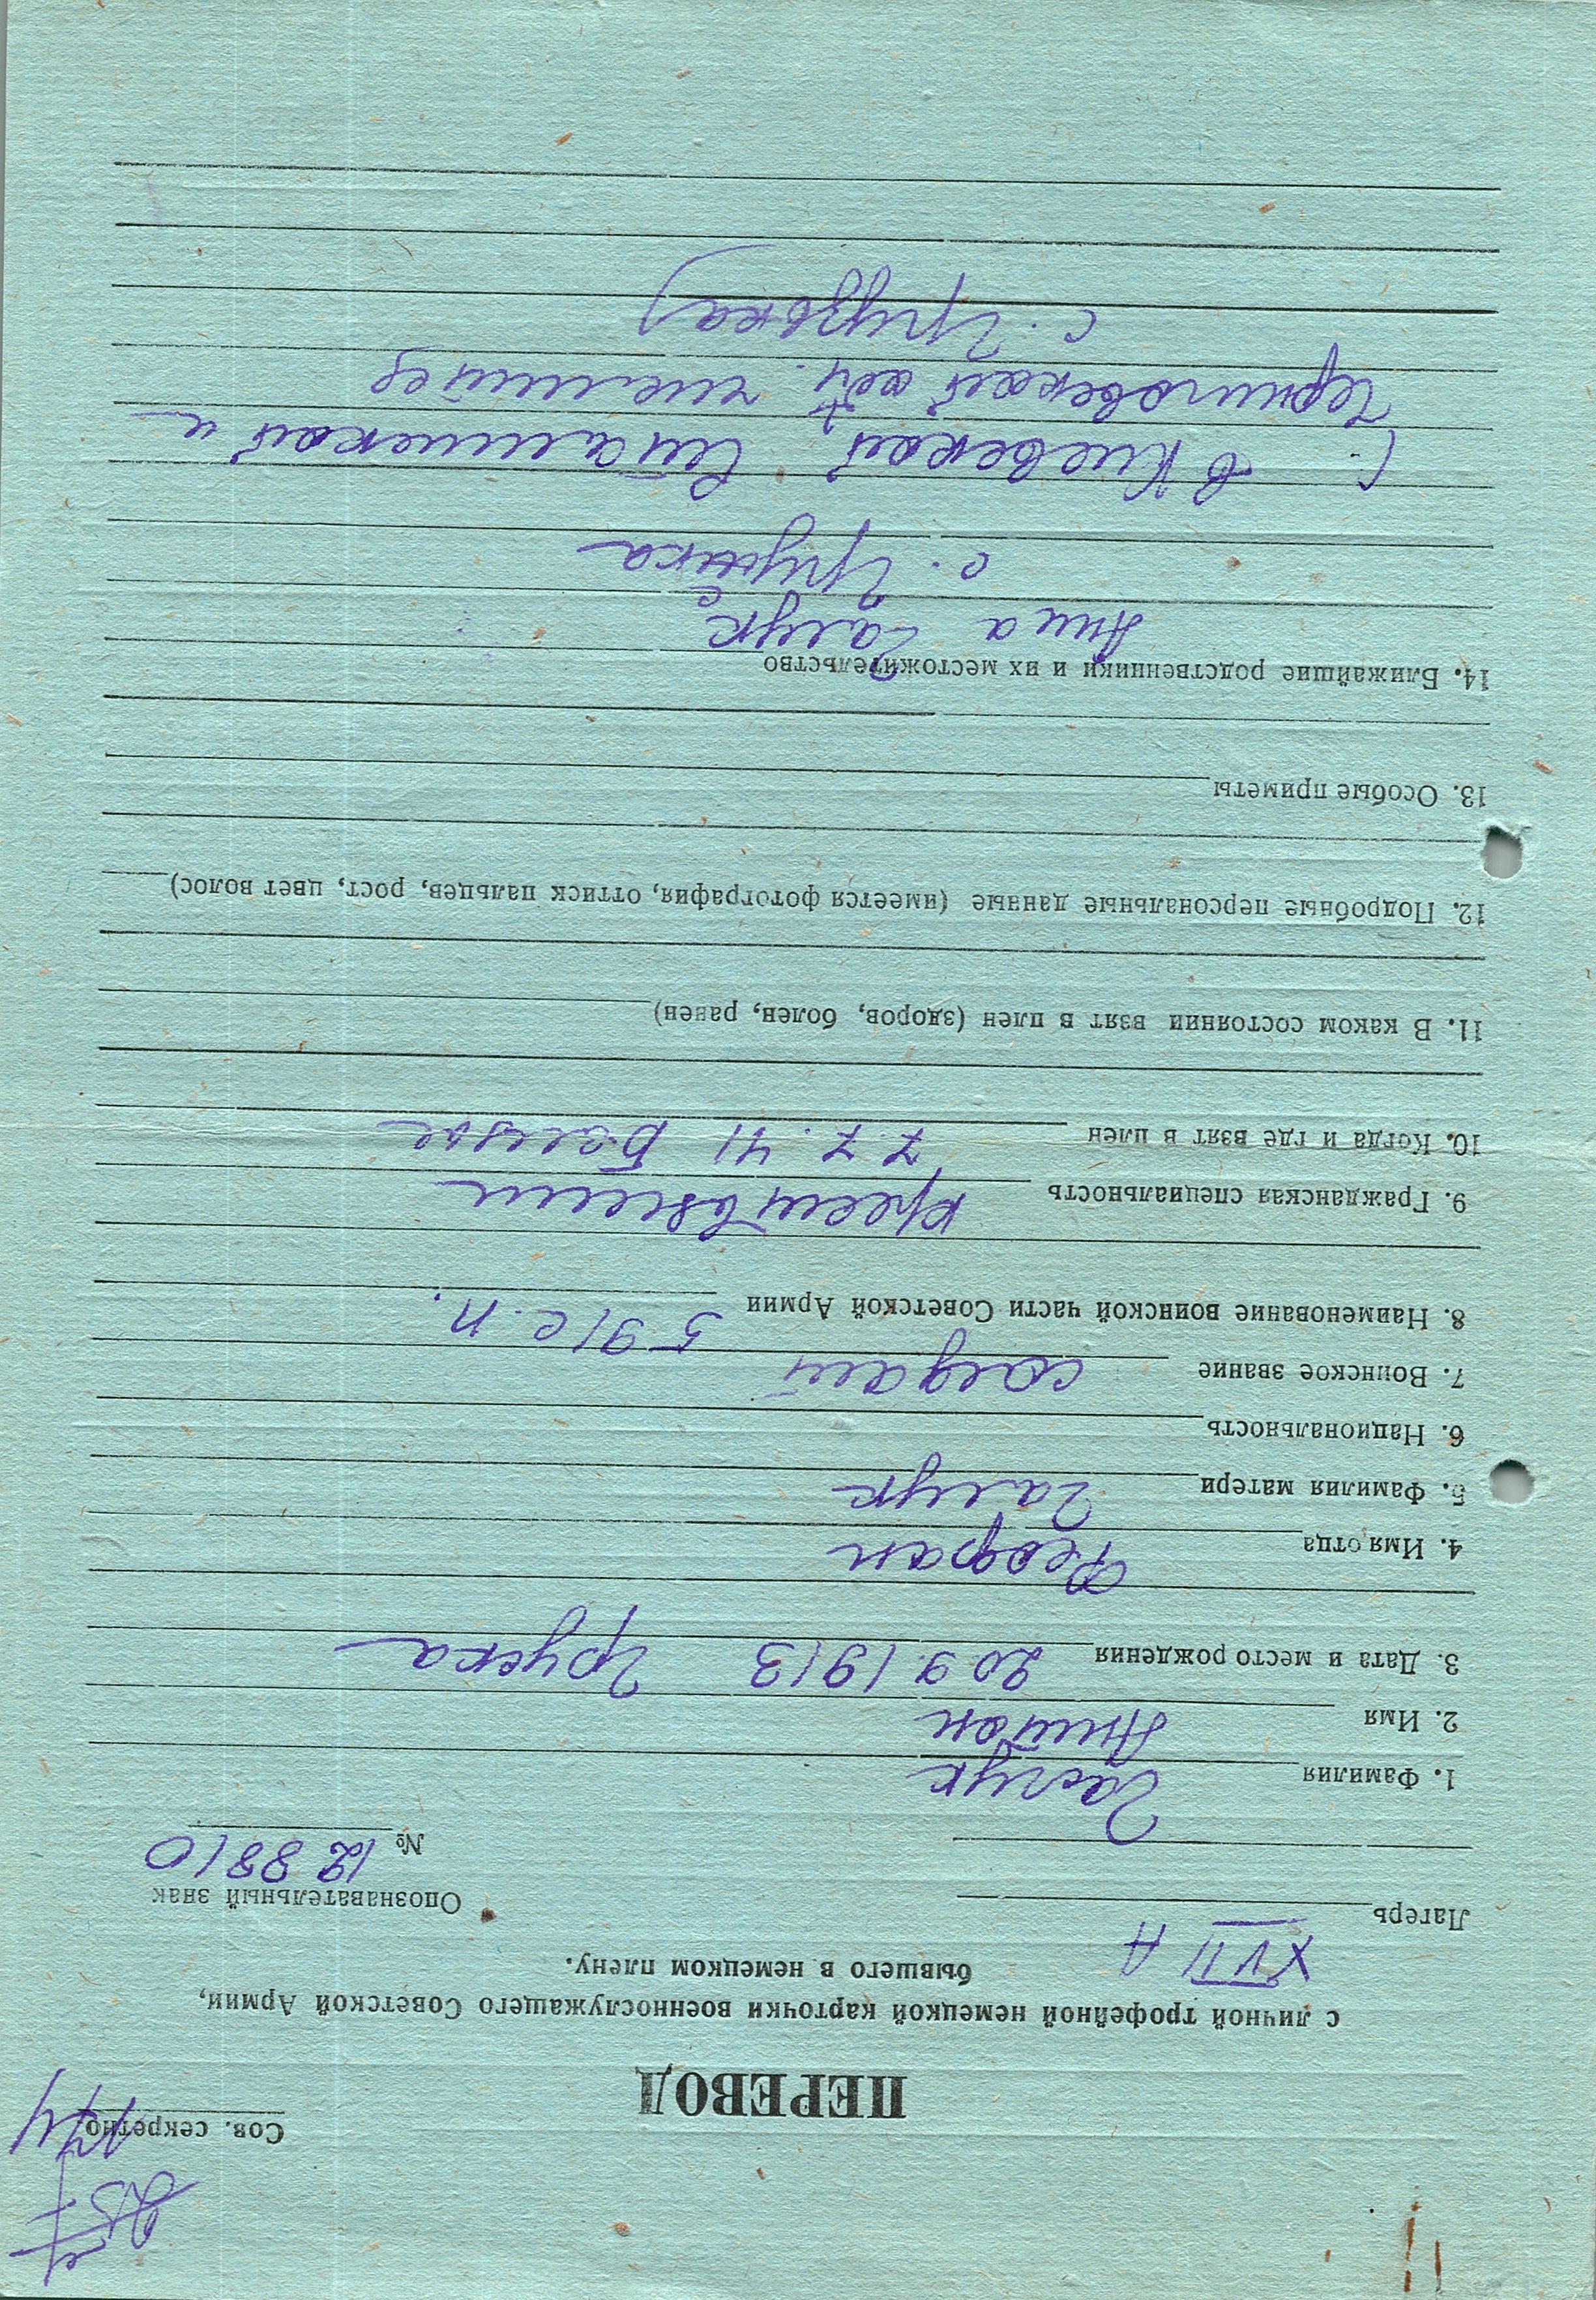 174
Сов. секретно
ПЕРЕВОД
с личной трофейной немецкой карточки военнослужащего Советской Армии,
бывшего в немецком плену.
Лагерь XVII A
Опознавательный знак
№ 128810
1. Фамилия Галук
2. Имя Антон
3. Дата и место рождения 20.9.1913 Груска
4. Имя отца Феофан
5. Фамилия матери Галук
6. Национальность
7. Воинское звание солдат
8. Наименование воинской части Советской Армии 591 с.п.
9. Гражданская специальность крестьянин
10. Когда и где взят в плен 7.7.41
11. В каком состоянии взят в плен (здоров, болен, ранен)
12. Подробные персональные данные (имеется фотография, отгиск пальцев, рост, цвет волос)
13. Особые приметы
14. Ближайшие родственники и их местожительство
Анна Галук
с.
( в Киевской, Сталинской и
Черниговской обл. имеется
с. Грузька)